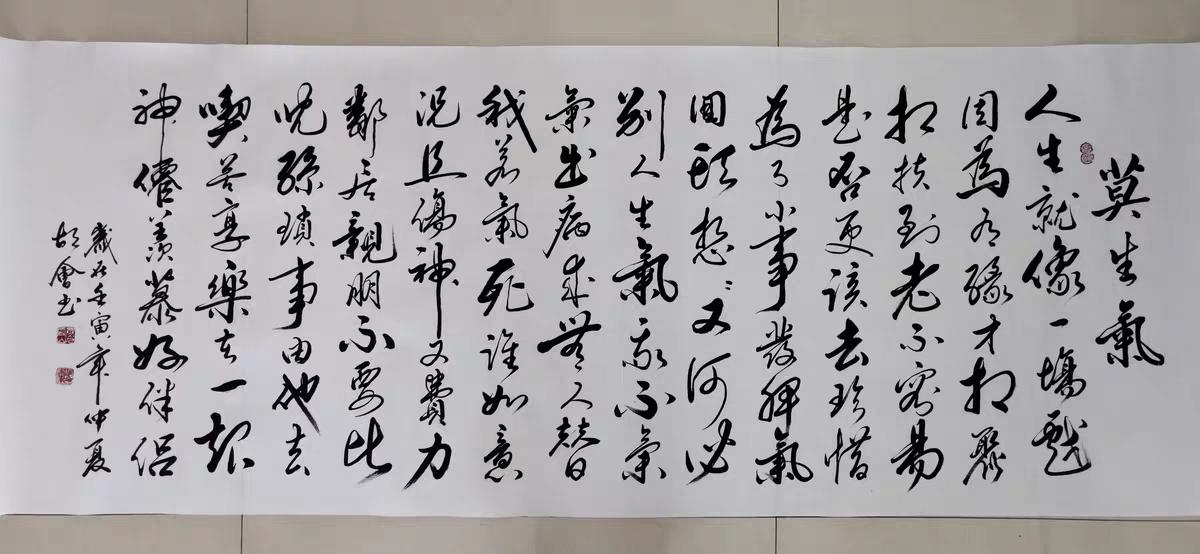 莫生氣
人生就像一場戲
因為有緣才相聚
相扶到老不容易
是否更該去珍惜
為了小事發脾氣
回頭想想又何必
別人生氣我不氣
氣出病來無人替
我若氣死誰如意
況且傷神又費力
鄰居親朋不要比
兒孫瑣事由他去
喫苦享樂在一起
神僊羨慕好伴侶
歲在壬寅年仲夏
胡會書